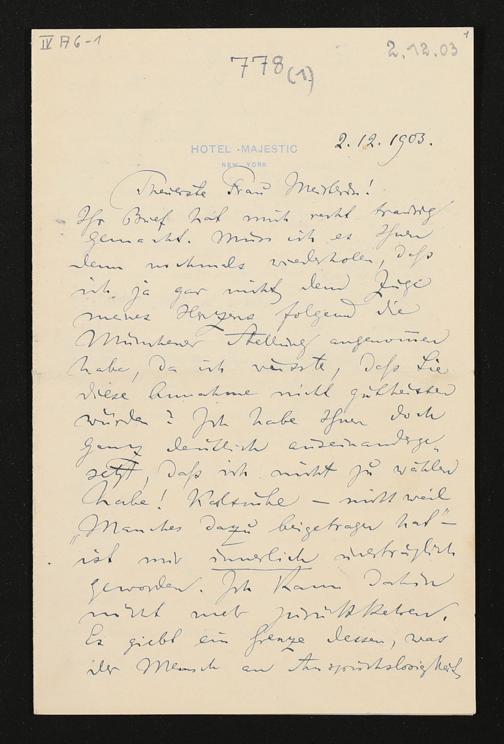 IV A6-1
2.12.03
1
778 (1)
HOTEL MAJESTIC
NEW YORK
2.12.1903.
Theuerste Frau Meisterin!
Ihr Brief hat mich recht traurig
gemacht. Muss ich es Ihnen
denn nochmals wiederholen, daß
ich ja gar nicht dem Zuge
meines Herzens folgend die
Münchener Stellung angenommen
habe, da ich wusste, daß Sie
diese Annahme nicht gutheissen
würden? Ich habe Ihnen doch
ganz deutlich auseinanderge-
setzt, daß ich nicht zu wählen
habe! Karlsruhe – nicht weil
„Manches dazu beigetragen hat“ –
ist mir innerlich unerträglich
geworden. Ich kann dahin
nicht mehr zurückkehren.
Es giebt eine Grenze dessen, was
der Mensch an Anspruchslosigkeit